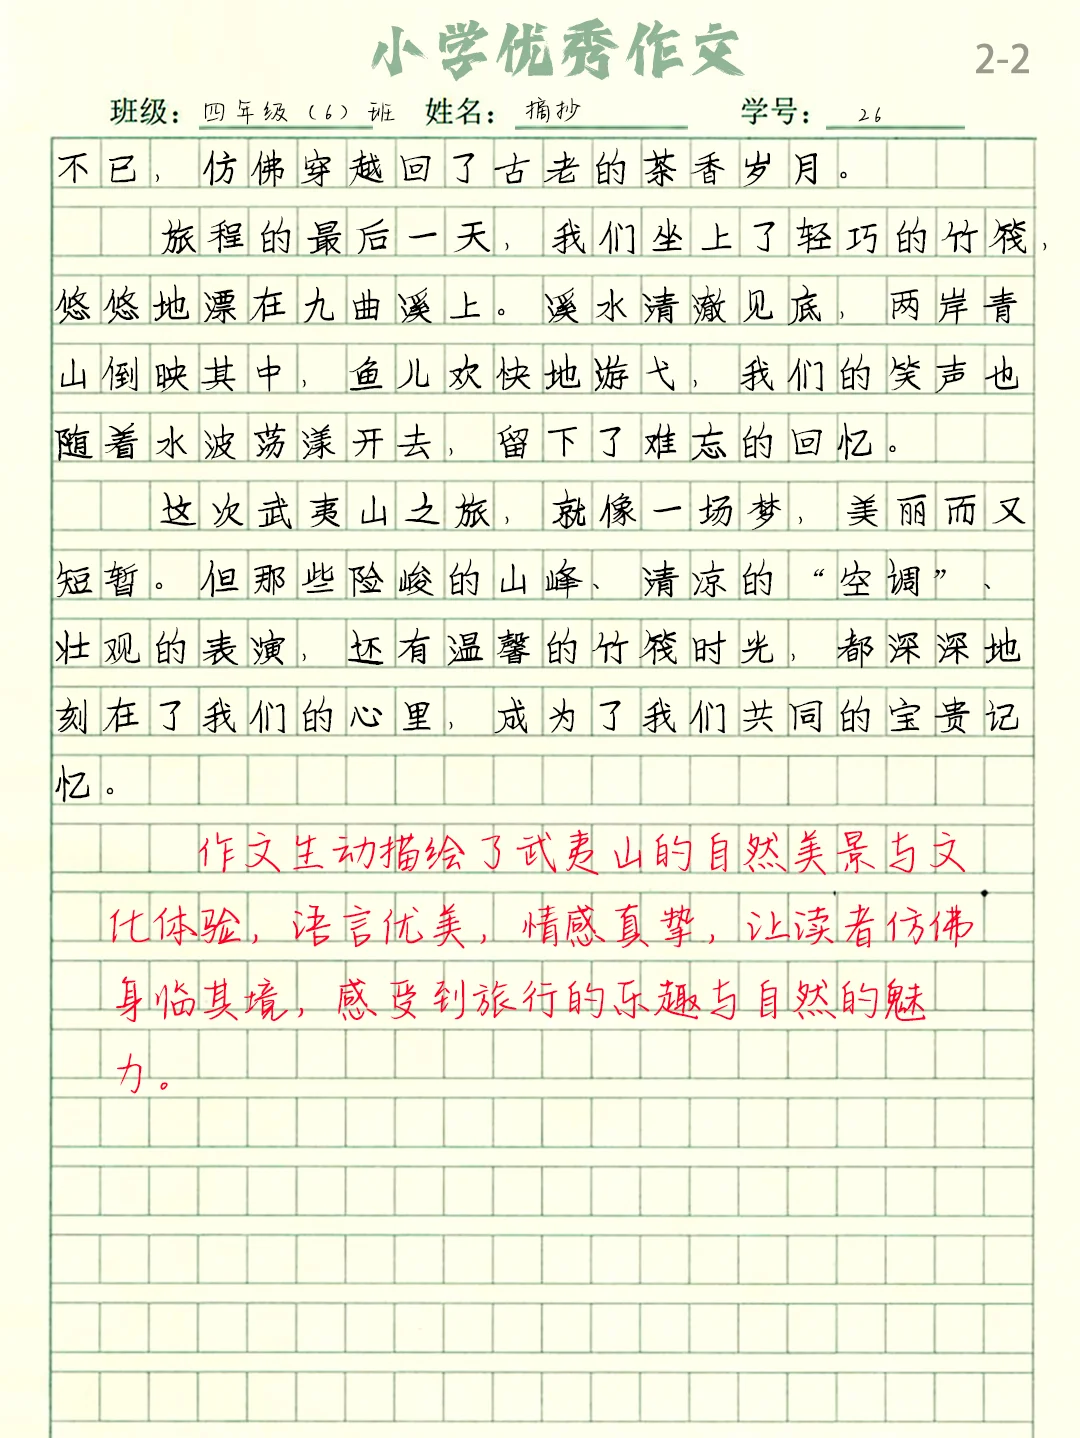 小学优秀作文
2-2
班级：四年级（6）班 姓名：摘抄 学号：26
不已，仿佛穿越回了古老的茶香岁月。
旅程的最后一天，我们坐上了轻巧的竹筏，
悠悠地漂在九曲溪上。溪水清澈见底，两岸青
山倒映其中，鱼儿欢快地游弋，我们的笑声也
随着水波荡漾开去，留下了难忘的回忆。
这次武夷山之旅，就像一场梦，美丽而又
短暂。但那些险峻的山峰、清凉的“空调”、
壮观的表演，还有温馨的竹筏时光，都深深地
刻在了我们的心里，成为了我们共同的宝贵记
忆。
作文生动描绘了武夷山的自然美景与文
化体验，语言优美，情感真挚，让读者仿佛
身临其境，感受到旅行的乐趣与自然的魅
力。